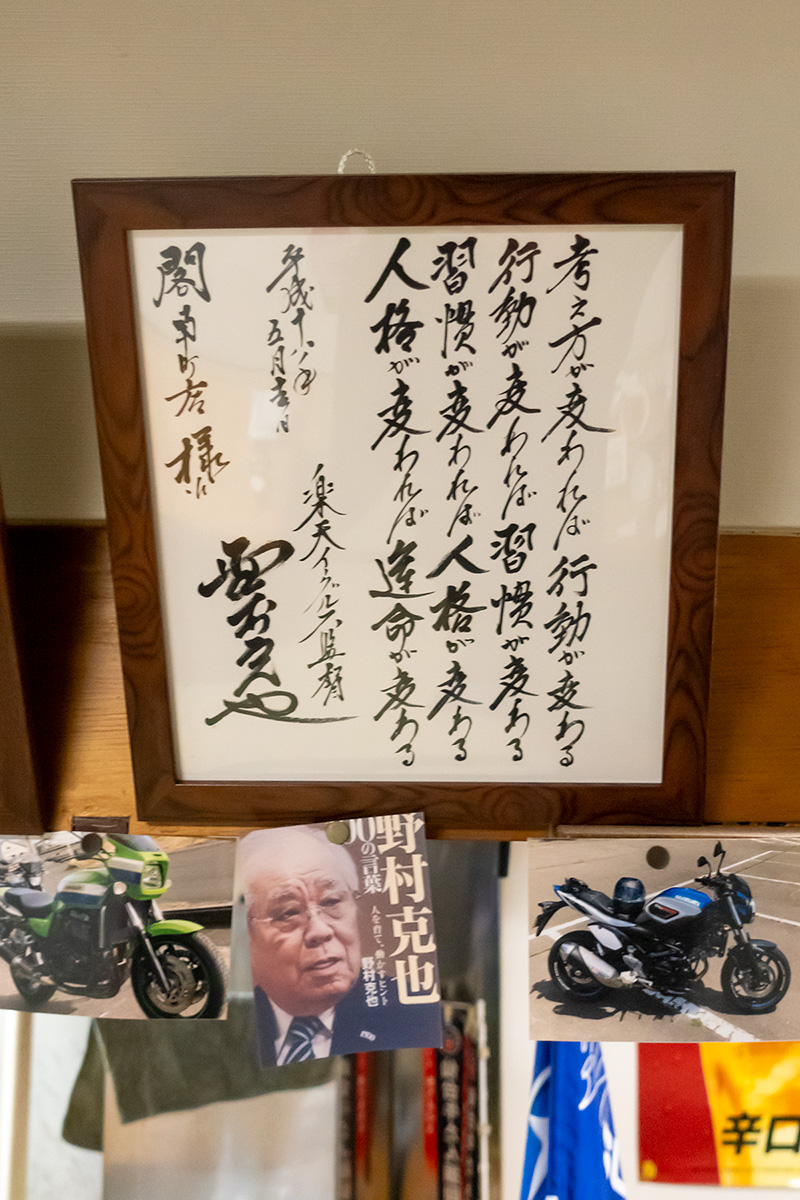 考え方が変われば行動が変わる
行動が変われば習慣が変わる
習慣が変われば人格が変わる
人格が変われば運命が変わる
平成十八年
五月吉日
楽天イーグルス監督
閣南町店様江
野村克也
の言葉
人を育て、動かすヒント
野村克也
SUZUKI
辛口